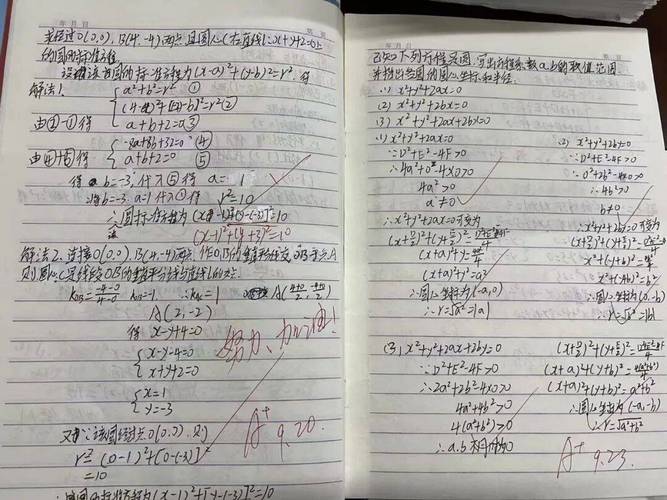 年 月 日
求经过O(0,0),B(4,-4)两点,且圆心C在直线l:x+y+2=0上
的圆的标准方程.
设该圆的标准方程为(x-a)²+(y-b)²=r²
解法1. { a²+b²=r² ①
(4-a)²+(-4-b)²=r² ②
a+b+2=0 ③
由②-①得 { -8a+8b+32=0 ④
a+b+2=0 ⑤
由④+⑤得
得 b=-3,代入⑤得 a=1
将b=-3.a=1代入①得 r²=10
∴圆标准方程为(x-1)²+[y-(-3)]²=10
(x-1)²+(y+3)²=10
解法2.连接O(0,0),B(4,-4)两点,作OB的垂直平分线交OB于点A
则圆心C是线段OB的垂直平分线与直线l的交点
k_OB=(-4-0)/(4-0) k_OB=-1 ∴k=1 A((4+0)/2,(-4+0)/2)
A(2,-2)
得 x-y-4=0
{ x-y-4=0
x+y+2=0
{ x=1
y=-3
又∵该圆经过点O(0,0),则
r²=(0-1)²+[0-(-3)]²
=10
∴该圆的标准方程为(x-1)²+[y-(-3)]²=10
努力、加油!
A+
9.20.
年 月 日
已知下列方程是圆,写出方程系数a,b的取值范围
并指出各圆的圆心坐标和半径.
(1) x²+y²+2ax=0
(2) x²+y²+2by=0
(3) x²+y²+2ax+2by=0
(1) x²+y²+2ax=0
∵D²+E²-4F>0
∴4a²+0²-4×0>0
4a²>0
a≠0
∴x²+y²+2ax=0可变为
(x+D/2)²+(y+E/2)²=(D²+E²-4F)/4
(x+a)²+y²=4a²/4
(x+a)²+y²=a²
∴圆心坐标为(-a,0)
∴r=√a²=|a|
(2) x²+y²+2by=0
∵D²+E²-4F>0
∴0²+2b²-4×0>0
∴4b²>0
b≠0
∴x²+y²+2by=0可变为
(x+D/2)²+(y+E/2)²=(D²+E²-4F)/4
x²+(y+b)²=4b²/4
x²+(y+b)²=b²
∴圆心坐标为(0,-b)
∴r=√b²=|b|
(3) x²+y²+2ax+2by=0
∵D²+E²-4F>0
∴2a²+2b²-4×0>0
4a²+4b²>0
4(a²+b²)>0
∴a.b不同时为0
(x+D/2)²+(y+E/2)²=(D²+E²-4F)/4
(x+a)²+(y+b)²=4(a²+b²)/4
(x+a)²+(y+b)²=a²+b²
∴圆心坐标为(-a,-b)
∴r=√a²+b²
A+ 9.23.